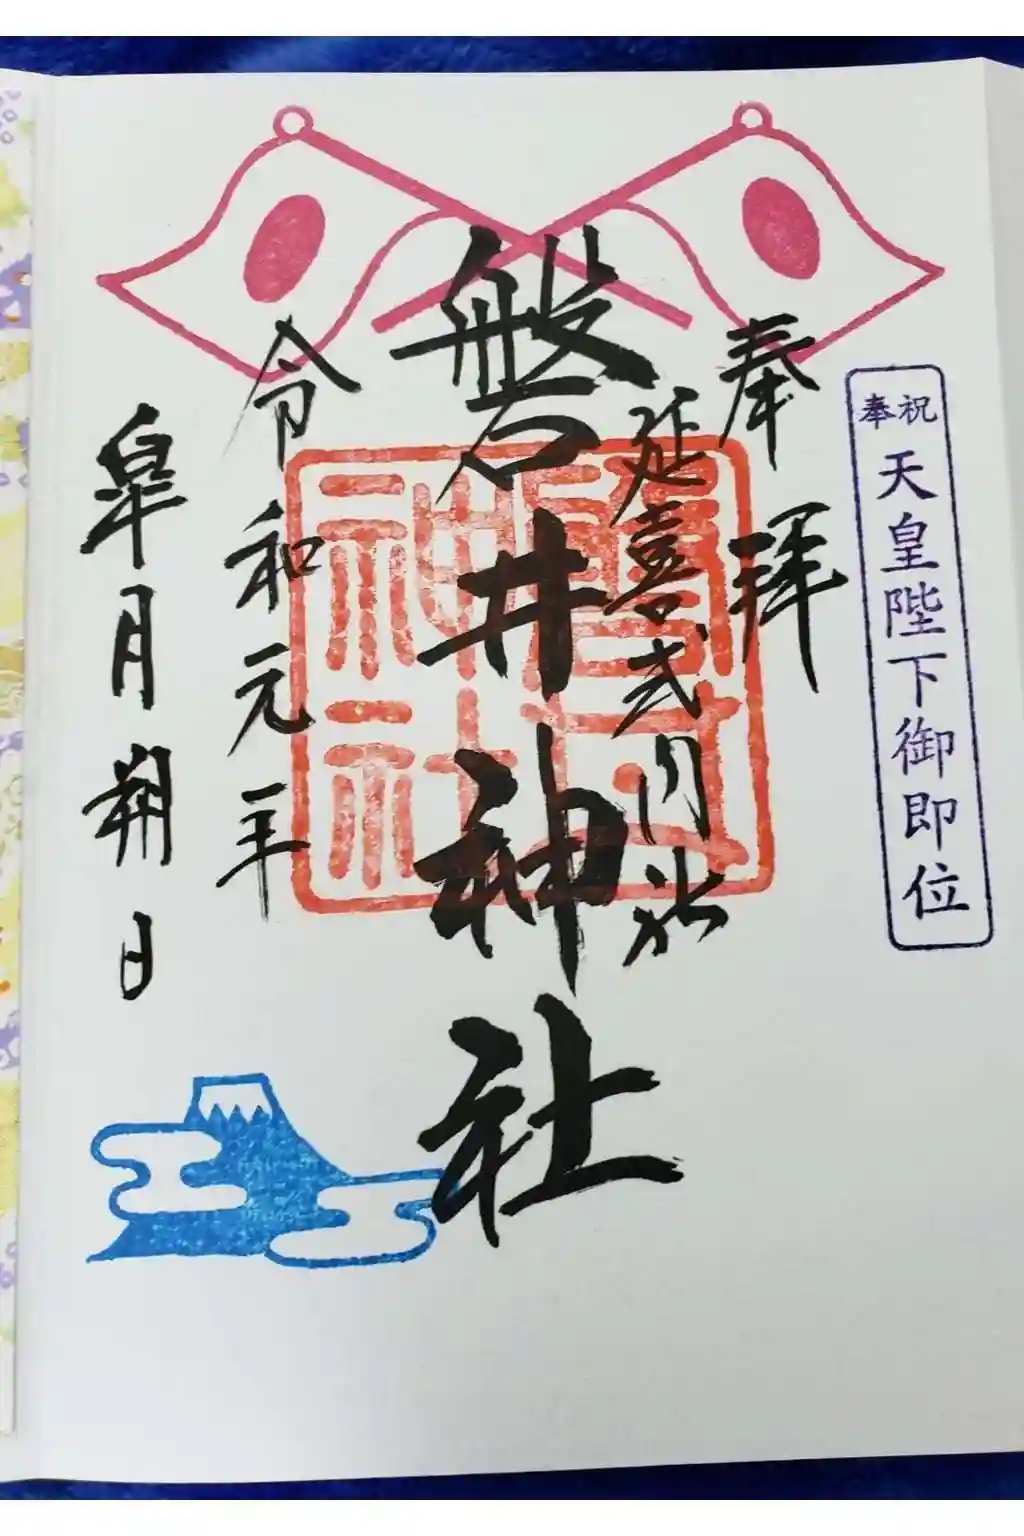 奉祝
天皇陛下御即位
奉拝
延喜式内社
磐井神社
磐井神社
令和元年
皐月朔日